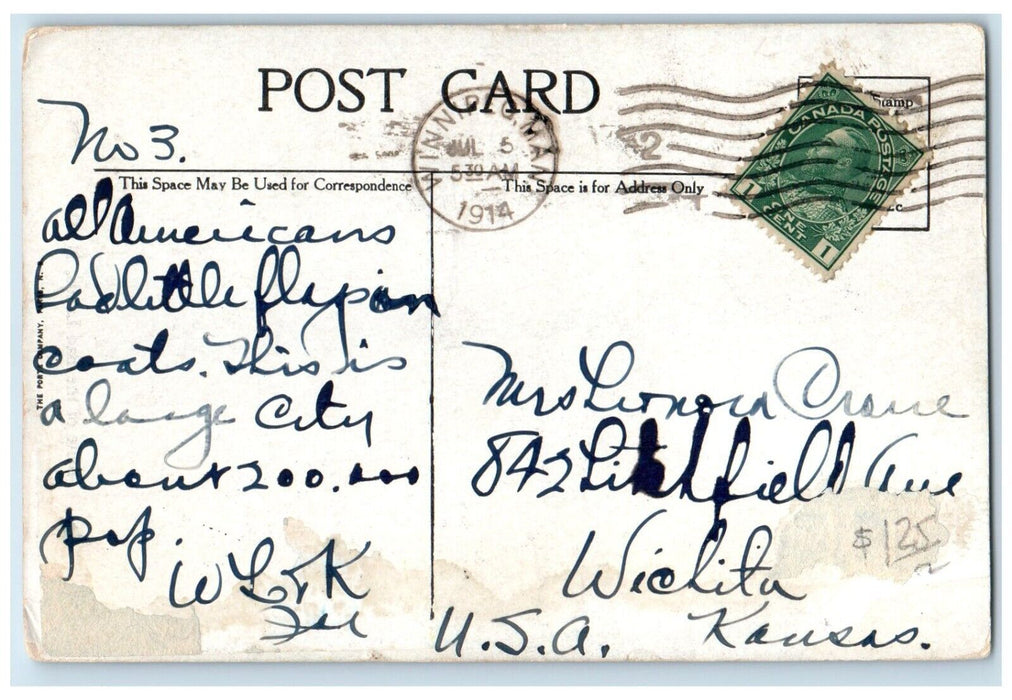 POST CARD
No 3.
WINNIPEG, MAN
JUL 5
530 AM
1914
Stamp
CANADA POSTAGE
1 ONE CENT 1
This Space May Be Used for Correspondence
This Space is for Address Only
all Americans
had little flag on
coats. This is
a large City
about 200.000
pop.
W L & K
THE PORTE COMPANY,
Mrs Leonora Crane
842 Litchfield Ave
Wichita
Kansas.
U.S.A.
$125